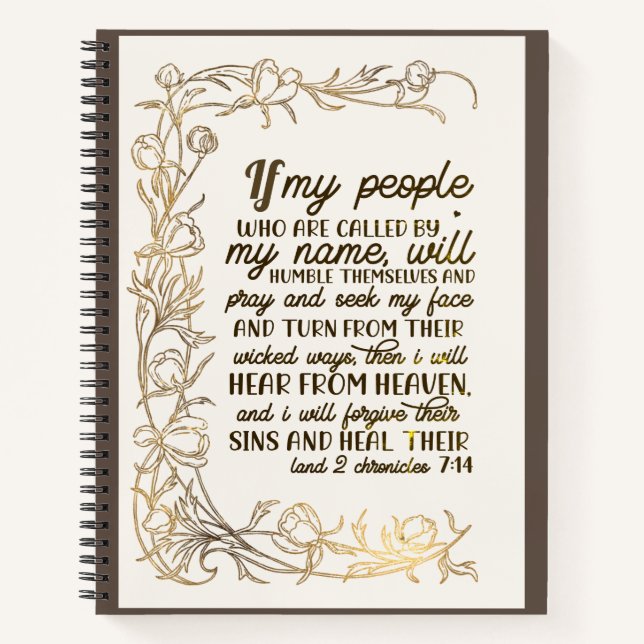 If my people
WHO ARE CALLED BY
my name, will
HUMBLE THEMSELVES AND
pray and seek my face
AND TURN FROM THEIR
wicked ways, then i will
HEAR FROM HEAVEN,
and i will forgive their
SINS AND HEAL THEIR
land 2 chronicles 7:14